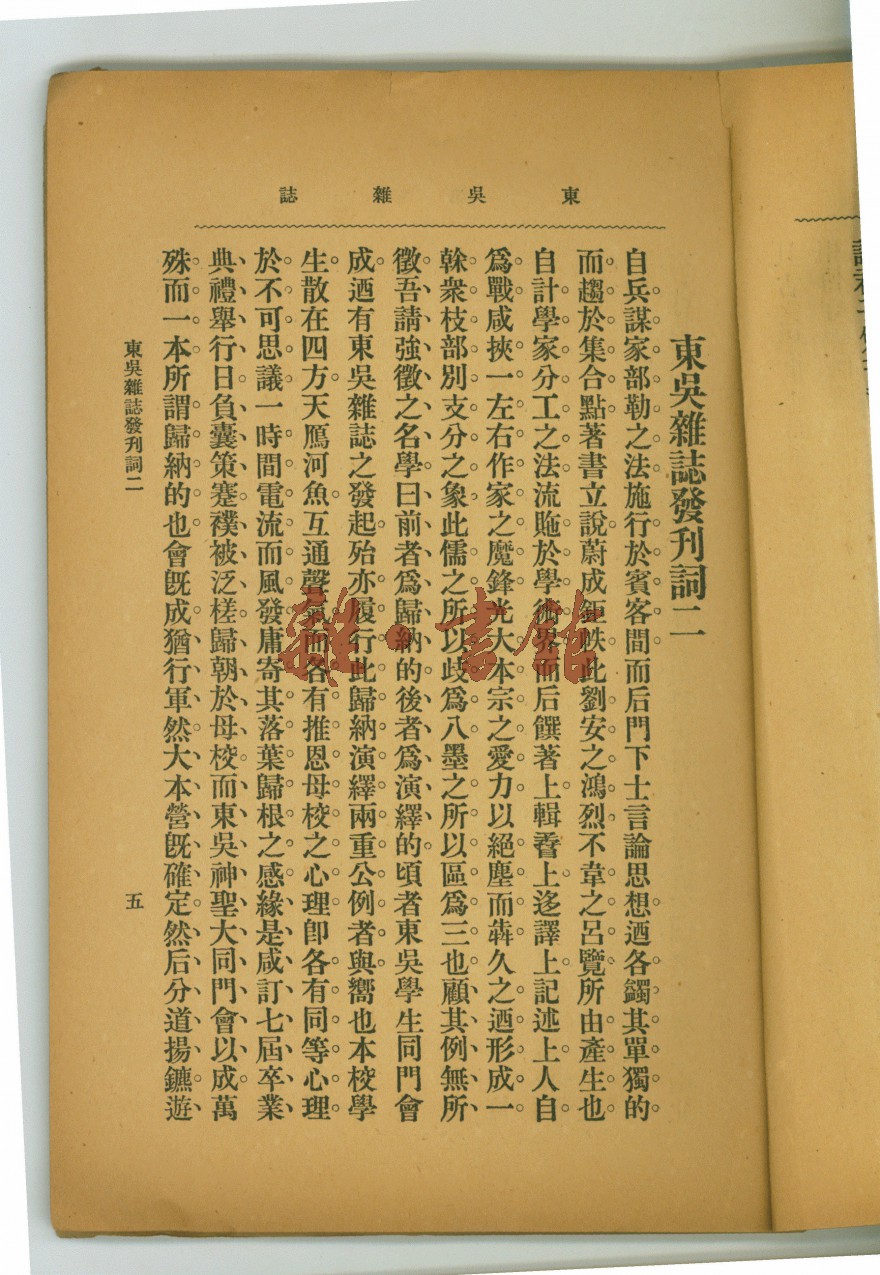 東吳雜誌
東吳雜誌發刊詞二
自兵謀家部勒之法施行於賓客間而后門下士言論思想迺各蠲其單獨的
而趨於集合點著書立說蔚成鉅帙此劉安之鴻烈不韋之呂覽所由產生也
自計學家分工之法流貤於學術界而后饌著上輯上迻譯上記述上人自
爲戰咸挾一左右作家之魔鋒光大本宗之愛力以絕塵而犇久之迺形成一
榦衆枝部別支分之象此儒之所以歧爲八墨之所以區爲三也顧其例無所
徵吾請強徵之名學曰前者爲歸納的後者爲演繹的頃者東吳學生同門會
成迺有東吳雜誌之發起殆亦履行此歸納演繹兩重公例者與嚮也本校學
生散在四方天鴈河魚互通聲氣而各有推恩母校之心理卽各有同等心理
於不可思議一時間電流而風發庸寄其落葉歸根之感緣是咸訂七屆卒業
典禮舉行日負囊策蹇襆被泛槎歸朝於母校而東吳神聖大同門會以成萬
殊而一本所謂歸納的也會旣成猶行軍然大本營旣確定然后分道揚鑣遊
東吳雜誌發刊詞二
五
雜·書館